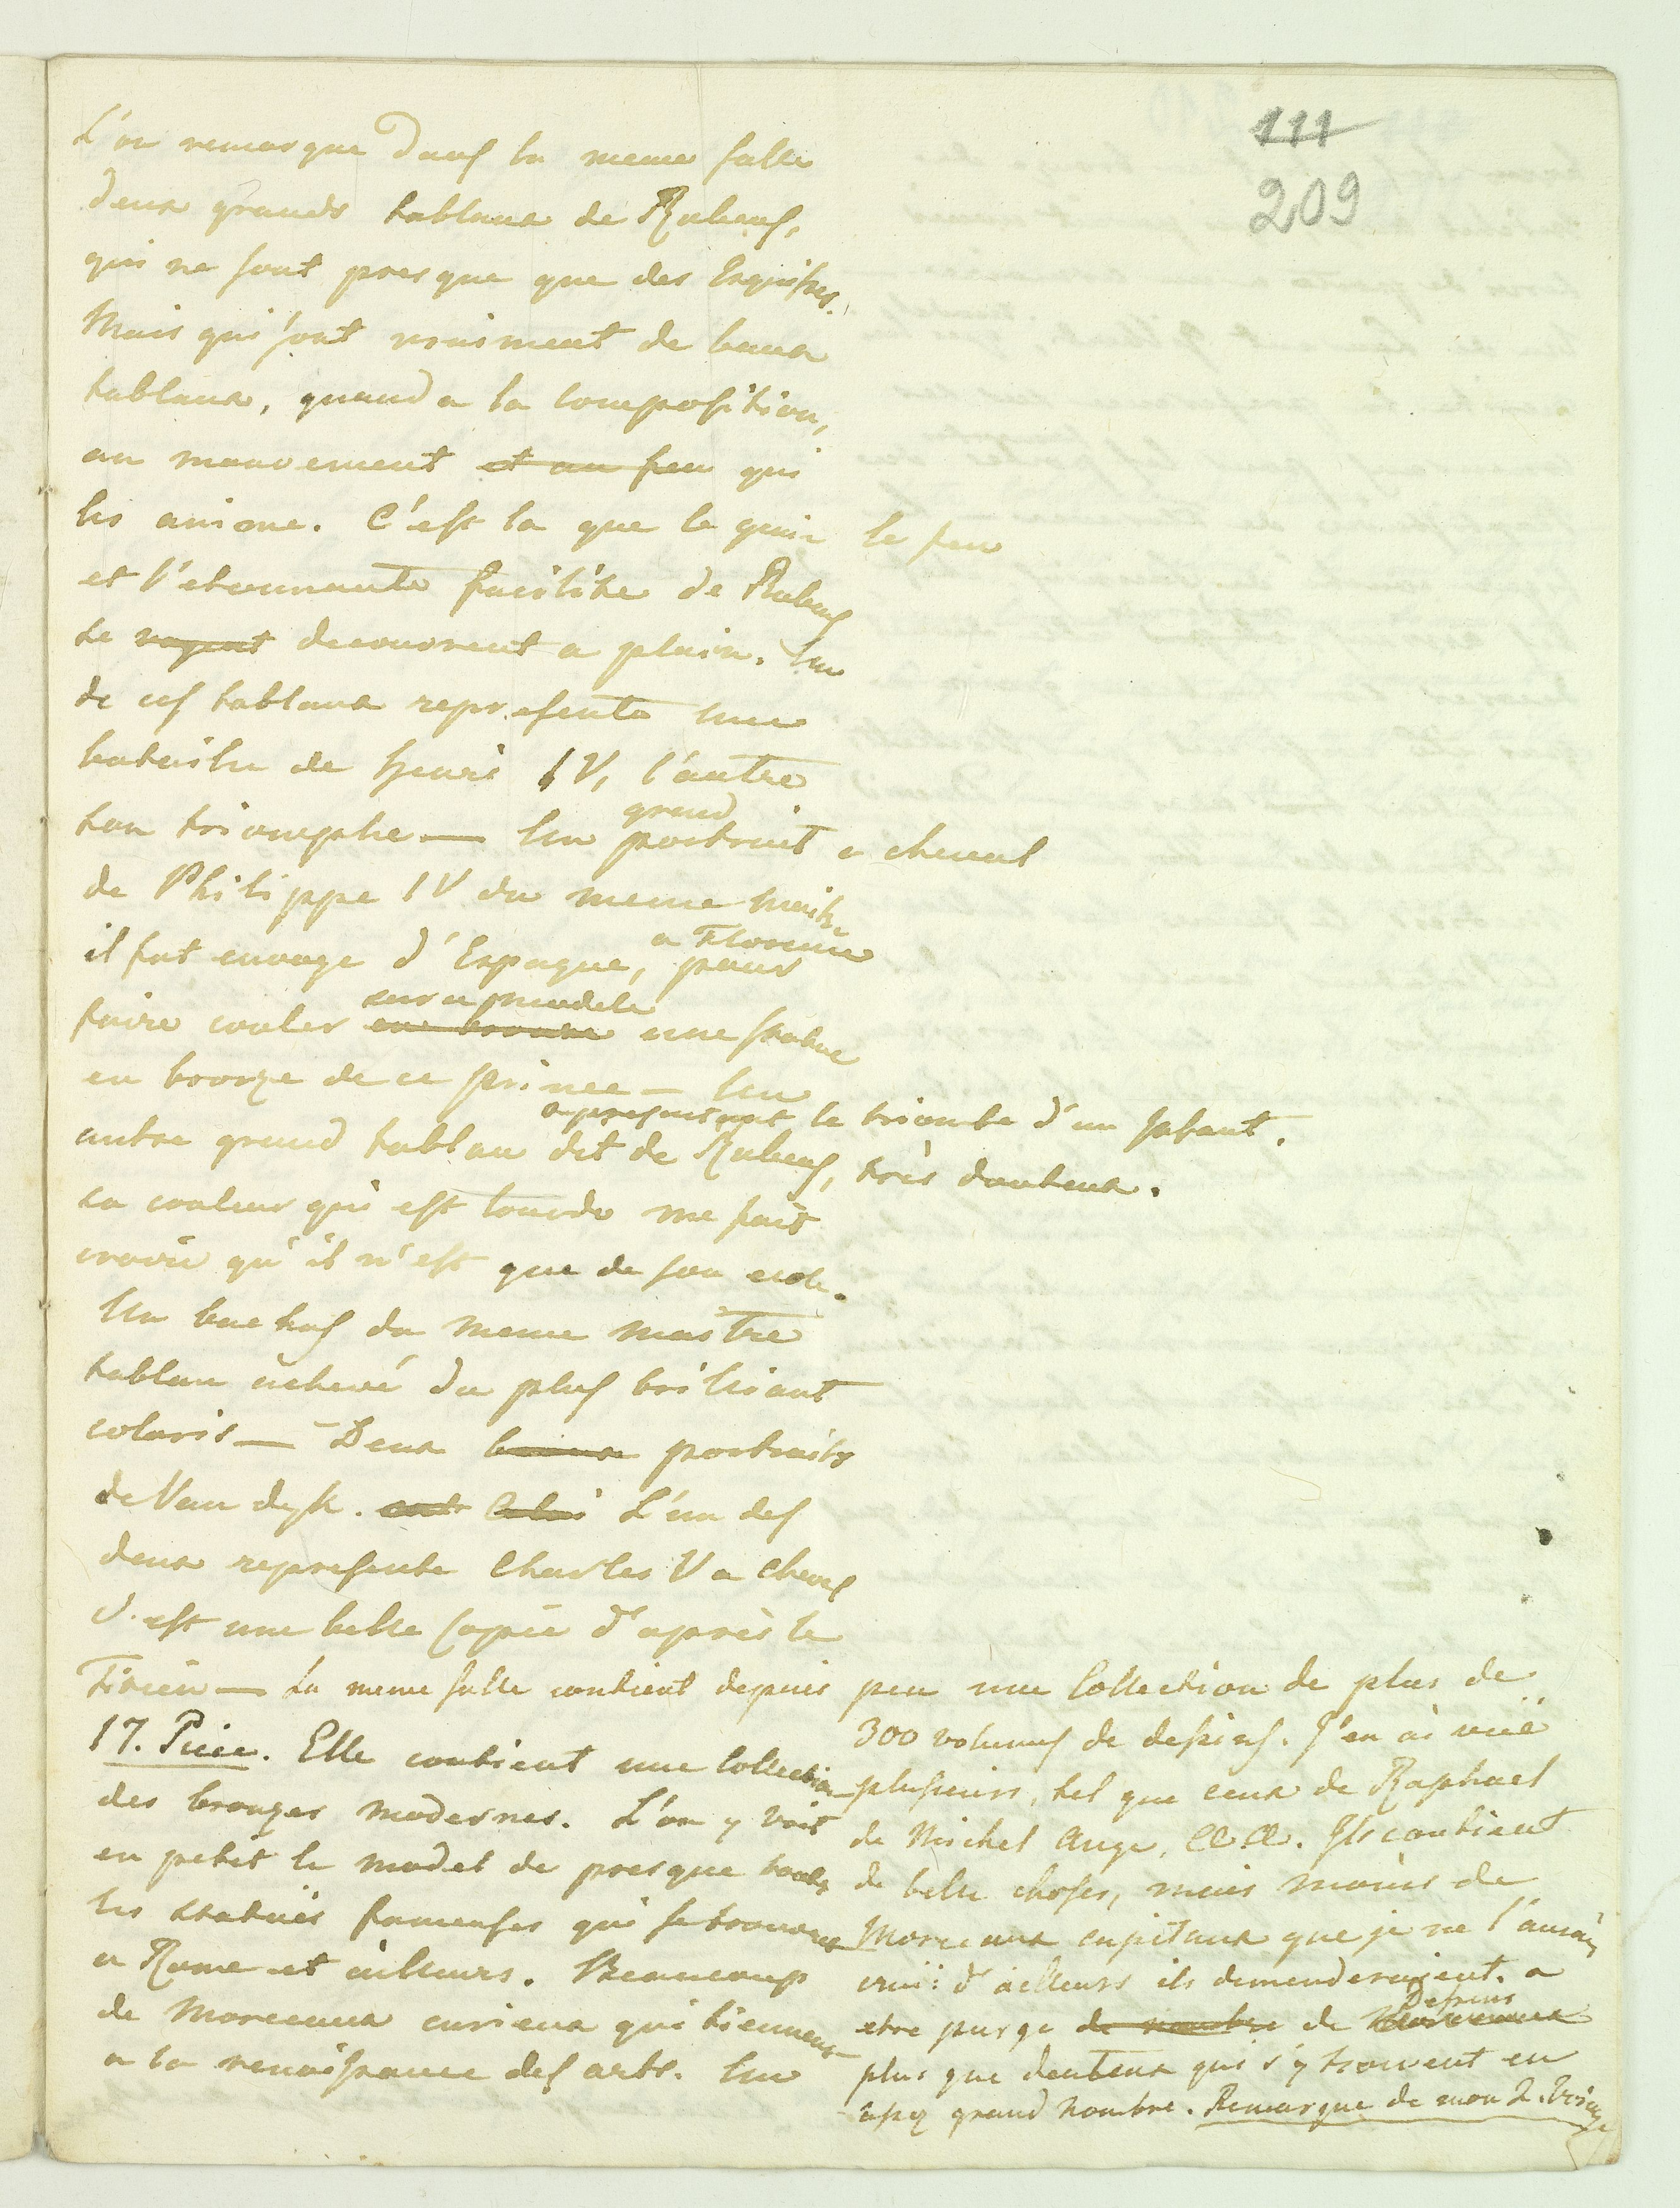 111
209
L'on remarque dans la meme salle
deux grands tableaux de Rubens,
qui ne sont presque que des Esquisses.
Mais qui sont vraiment de beaux
tableaux, quand a la composition,
au mouvement et au feu qui
les anime. C'est la que le genie le feu
et l'etonnante facilite de Rubens
se voyent decouvrent a plain. Un
de ces tableaux represente une
bataille de Henri IV, l'autre
son triomphe — Un grand portrait a cheval
de Philippe IV du meme maitre
il fut envoye d'Espagne, a Florence pour
faire couler en bronze sur ce modele une statue
en bronze de ce prince — Un
representant le triomfe d'un Infant.
autre grand tableau dit de Rubens, très douteux.
sa couleur qui est lourde me fait
croire qu'il n'est que de son ecole.
Un bachus du meme maitre
tableau achevé du plus brilliant
coloris — Deux beaux portraits
de Van dyk. L'un des
deux represente Charles V a cheval
c'est une belle Copie d'après le
Titien — La meme salle contient depuis
17. Piece. Elle contient une Collection
des bronzes modernes. L'on y voit
en petit le model de presque toutes
les statues fameuses qui se trouvent
a Rome et ailleurs. Beaucoup
de Morceaux curieux qui tiennent
a la renaissance des arts. Un
peu une Collection de plus de
300 volumes de dessins. J'en ai vuë
plusieurs, tel que ceux de Raphael
de Michel Ange, &c. &c. Ils contient
de belle choses, mais moins de
Morceaux capitaux que je ne l'aurais
crû: d'ailleurs ils demanderaient a
etre purge de nombre de Morceaux Dessins
plus que douteux qui s'y trouvent en
assez grand nombre. Remarque de mon 2. Voiage